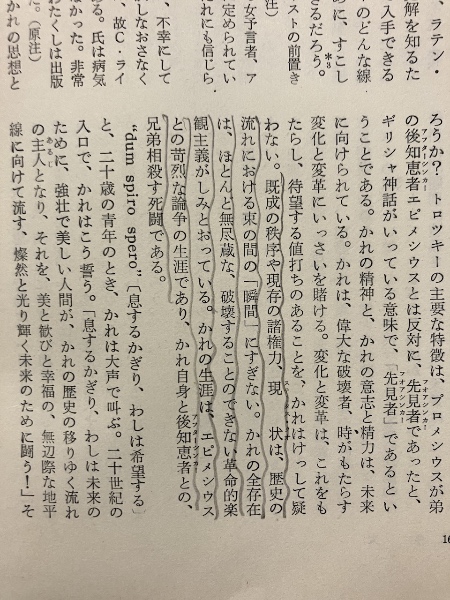 解を知るた
入手できる
のどんな線
に、すこし
きるだろう。
女予言者、ア
定められてい
れにも信じら
ストの前置き
注）
、不幸にして
しなおさなく
、故C・ライ
る。氏は病気
なかった。非常
たくしは出版
た。（原注）
かれの思想と
ろうか？　トロツキーの主要な特徴は、プロメシウスが弟
の後知恵者エピメシウスとは反対に、先見者であったと、
ギリシャ神話がいっている意味で、「先見者」であるとい
うことである。かれの精神と、かれの意志と精力は、未来
に向けられている。かれは、偉大な破壊者、時がもたらす
変化と変革にいっさいを賭ける。変化と変革は、これをも
たらし、待望する値打ちのあることを、かれはけっして疑
わない。既成の秩序や現存の諸権力、現状は、歴史の
流れにおける束の間の「瞬間」にすぎない。かれの全存在
は、ほとんど無尽蔵な、破壊することのできない革命的楽
観主義がしみとおっている。かれの生涯は、エピメシウス
との苛烈な論争の生涯であり、かれ自身と後知恵者との、
兄弟相殺す死闘である。
“dum spiro spero”〔息するかぎり、わしは希望する〕
と、二十歳の青年のとき、かれは大声で叫ぶ。二十世紀の
入口で、かれはこう誓う。「息するかぎり、わしは未来の
ために、強壮で美しい人間が、かれの歴史の移りゆく流れ
の主人となり、それを、美と歓びと幸福の、無辺際な地平
線に向けて流す、燦然と光り輝く未来のために闘う！」そ